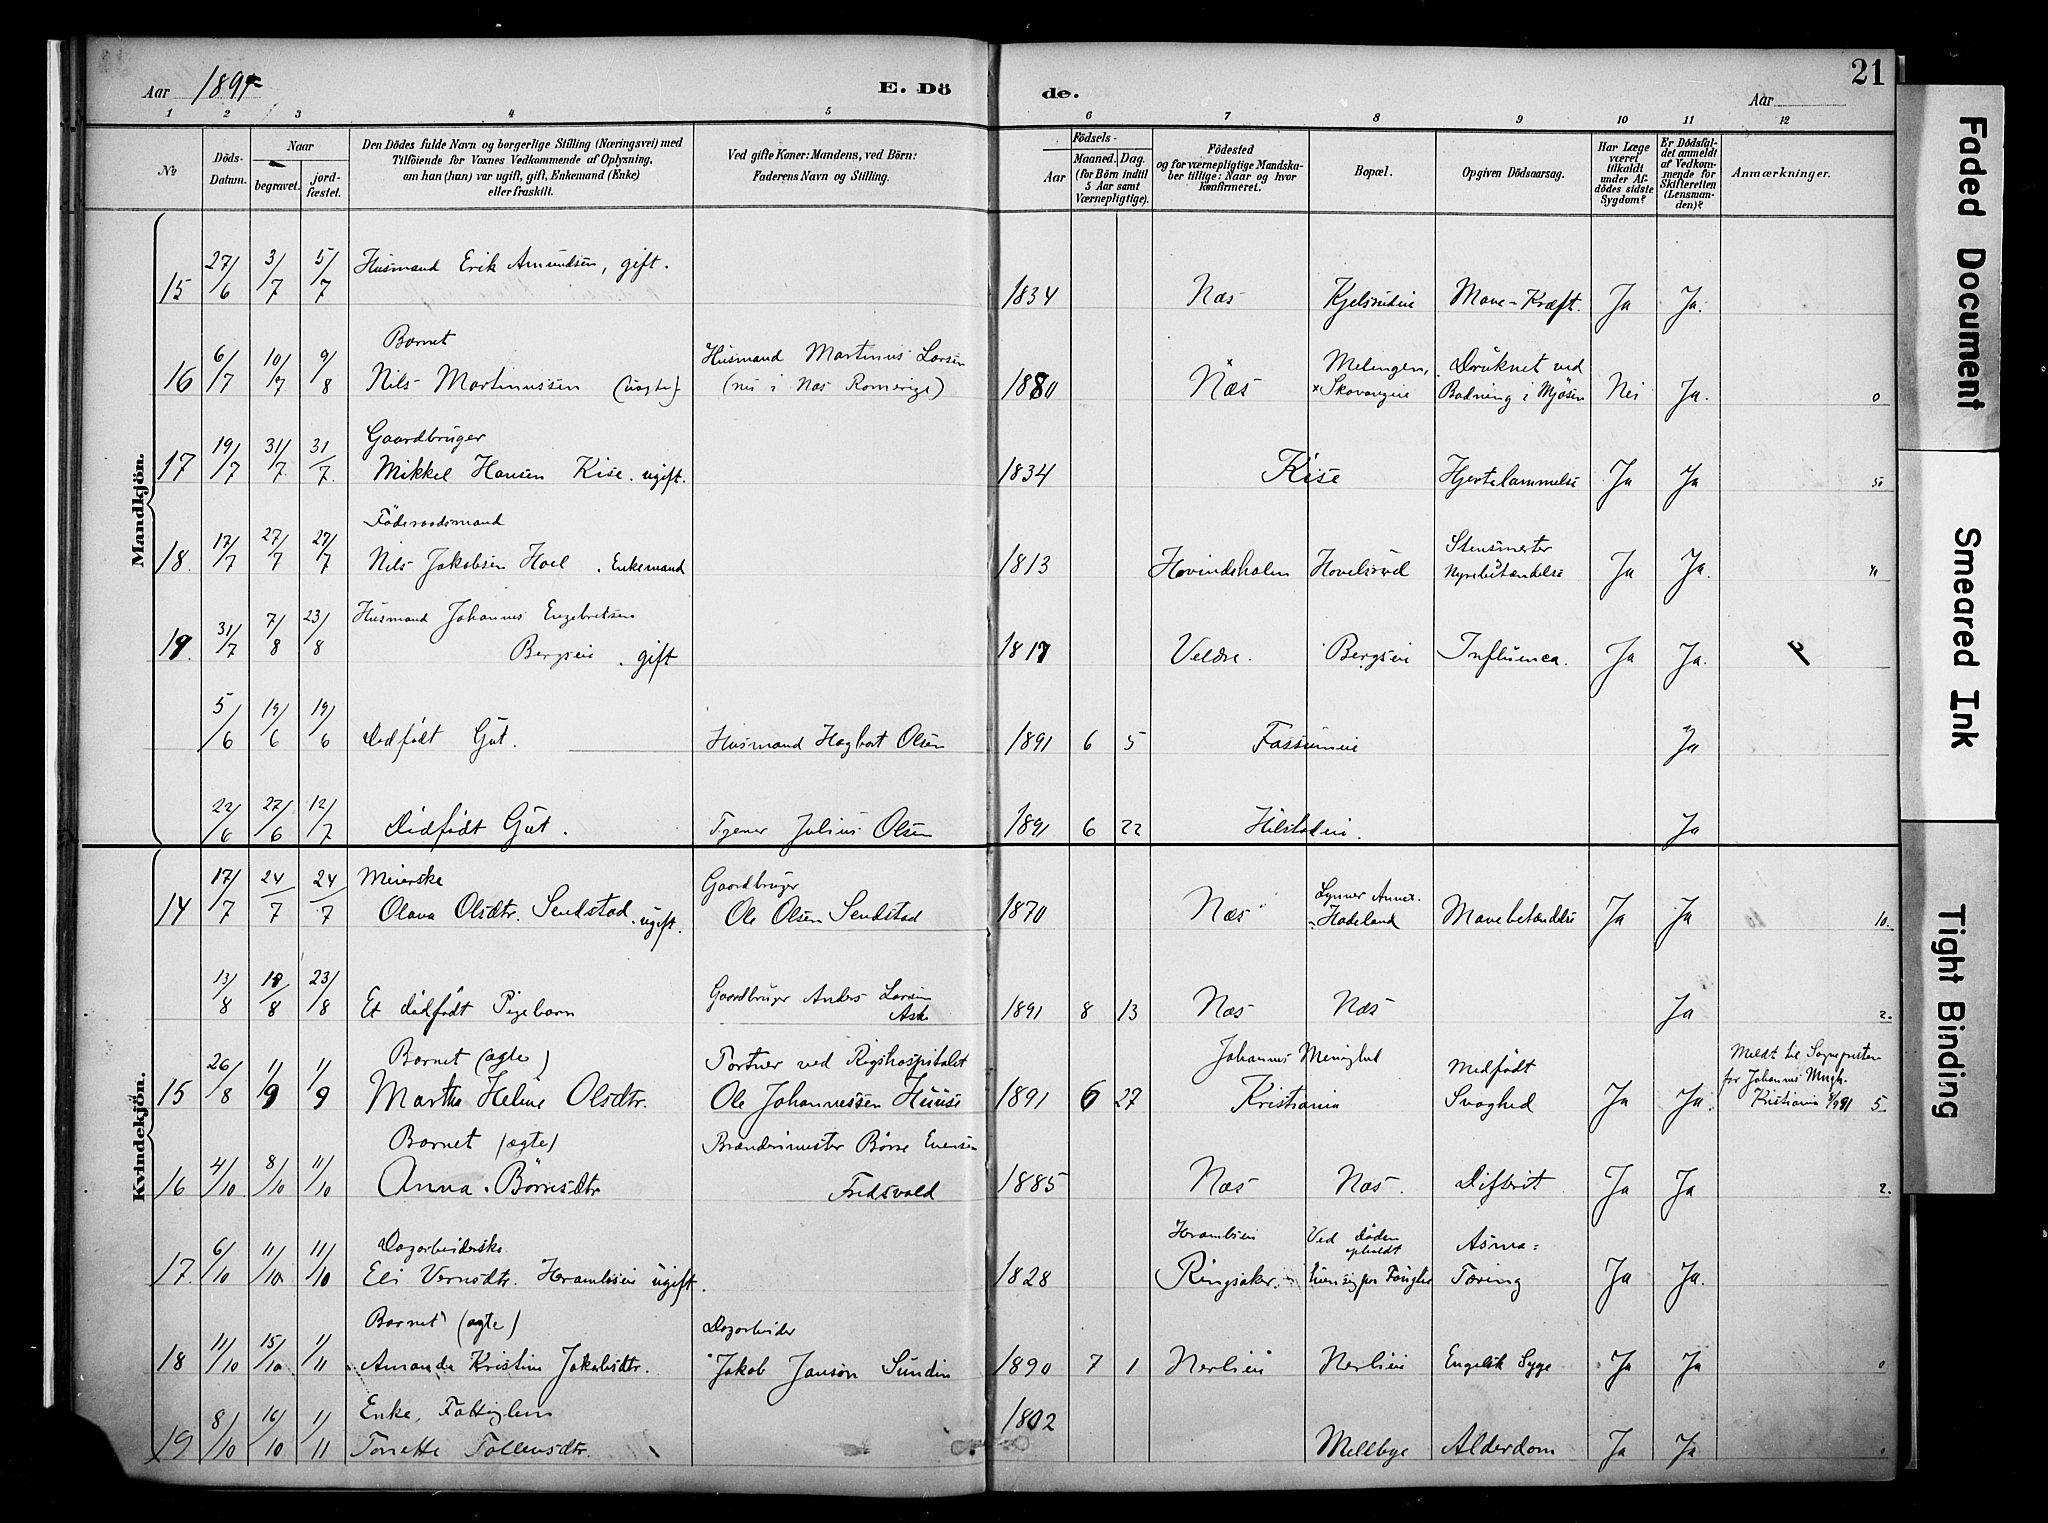 Aar 1891
E. Dö
de.
Aar
21
1 2 3 4 5 6 7 8 9 10 11 12
No
Döds-Datum.
Naar
begravet. jordfæstet.
Den Dödes fulde Navn og borgerlige Stilling (Næringsvei) med
Tilföiende for Voxnes Vedkommende af Oplysning,
om han (hun) var ugift, gift, Enkemand (Enke)
eller fraskilt.
Ved gifte Koner: Mandens, ved Börn:
Faderens Navn og Stilling.
Födsels-
Aar
Maaned. Dag.
(for Börn indtil
5 Aar samt
Værnepligtige).
Födested
og for værnepligtige Mandskaber tillige: Naar og hvor
Konfirmeret.
Bopæl.
Opgiven Dödsaarsag.
Har Læge
været
tilkaldt
under Afdödes sidste
Sygdom?
Er Dödsfaldet anmeldt
af Vedkommende for
Skifteretten
(Lensmanden)?
Anmærkninger.
Mandkjön.
15 27/6 3/7 5/7 Husmand Erik Amundsen, gift. 1834 Næs Kjelsrudeie Mave-Kræft. Ja Ja.
Barnet
16 6/7 10/7 9/8 Nils Martinussen (uægte) Husmand Martinus Larsen
(nu i Næs Romerige) 1880 Næs Melingen, Skavangeie Druknet ved
Badning i Mjøsen Nei Ja. 0
Gaardbruger
17 19/7 31/7 31/7 Mikkel Hansen Kise. ugift. 1834 Kise Hjertelammelse Ja Ja 50
Föderaadsmand
18. 17/7 27/7 27/7 Nils Jakobsen Hoel. Enkemand 1813 Hovindsholm Hovelsrud Stensmerter
Nyrebetændelse Ja Ja. 40
Husmand Johannes Engebretsen
19. 31/7 7/8 23/8 Bergseie. gift 1817 Veldre. Bergseie Influenca. Ja Ja. 2
5/6 19/6 19/6 Dødfødt Gut. Husmand Hagbart Olsen 1891 6 5 Fassumeie Ja
22/6 27/6 12/7 Dødfødt Gut. Tjener Julius Olsen 1891 6 22 Hilstadeie. Ja
Kvindekjön.
Meierske
14 17/7 24/7 24/7 Olava Olsdtr. Sendstad. ugift. Gaardbruger
Ole Olsen Sendstad 1870 Næs Lynner Annex.
Hadeland Mavebetændelse Ja Ja 10.
13/8 18/8 23/8 Et dødfødt Pigebarn Gaardbruger Anders Larsen
Ask 1891 8 13 Næs Næs Ja 2.
Barnet (ægte)
15 26/8 1/9 1/9 Martha Heline Olsdtr. Portner ved Rigshospitalet
Ole Johannessen Huuse 1891 6 27 Johannes Menighed
Kristiania Medfødt
Svaghed Ja Ja. Meldt til Sognepresten
for Johannes Mngh.
Kristiania 1/9 91 5
Barnet (ægte)
16 4/10 8/10 11/10 Anna Børresdtr Brænderimester Børre Evensen
Fredsvold 1885 Næs Næs. Difterit Ja Ja 2.
Dagarbeiderske
17. 6/10 11/10 11/10 Eli Vernsdtr. Hrambseie ugift. 1828 Hrambseie
Ringsaker. Ved Døden
opholdt
hun sig paa Fangberg Asma=
Tæring Ja Ja.
Barnet (ægte)
18 11/10 15/10 1/11 Amanda Kristine Jakobsdtr. Dagarbeider
Jakob Janson Sundin 1890 7 1 Nerlieie Nerlieie Engelsk Syge Ja Ja 0
Enke, Fattiglem
19 8/10 16/10 1/11 Tonette Tollensdtr. 1802 Mellbye Alderdom Ja Ja 0
Faded Document
Smeared Ink
Tight Binding